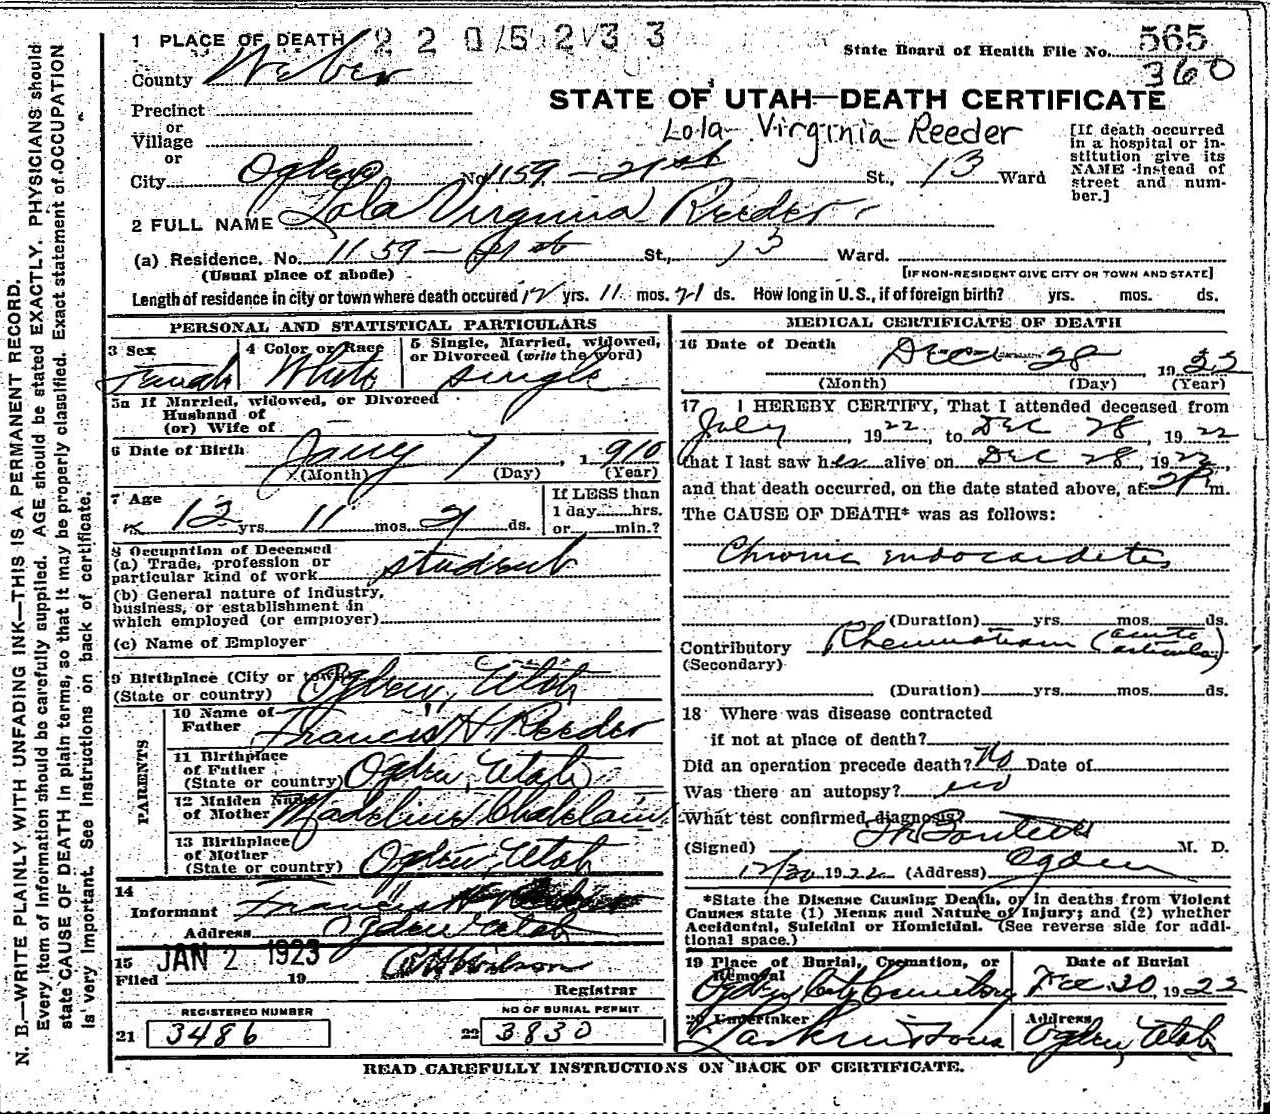 1 PLACE OF DEATH 2 2 0/5 2 3 3
State Board of Health File No. 565
360
County Weber
STATE OF UTAH—DEATH CERTIFICATE
Precinct
or
Village
or
Lola Virginia Reeder
[If death occurred in a hospital or institution give its NAME instead of street and number.]
City Ogden No. 1159 - 21st St., 13 Ward
2 FULL NAME Lola Virginia Reeder
(a) Residence. No. 1159 - 21st St., 13 Ward.
(Usual place of abode)
[IF NON-RESIDENT GIVE CITY OR TOWN AND STATE]
Length of residence in city or town where death occured 12 yrs. 11 mos. 21 ds. How long in U.S., if of foreign birth? yrs. mos. ds.
PERSONAL AND STATISTICAL PARTICULARS
3 Sex Female
4 Color or Race White
5 Single, Married, widowed, or Divorced (write the word) Single
5a If Married, widowed, or Divorced
Husband of
(or) Wife of
6 Date of Birth Jany 7, 1910
(Month) (Day) (Year)
7 Age 12 yrs. 11 mos. 21 ds.
If LESS than
1 day hrs.
or min.?
8 Occupation of Deceased
(a) Trade, profession or
particular kind of work student
(b) General nature of industry,
business, or establishment in
which employed (or employer)
(c) Name of Employer
9 Birthplace (City or town)
(State or country) Ogden, Utah
PARENTS
10 Name of Father Francis H Reeder
11 Birthplace of Father
(State or country) Ogden, Utah
12 Maiden Name of Mother Madeline Chatelain
13 Birthplace of Mother
(State or country) Ogden, Utah
14
Informant Francis H Reeder
Address Ogden Utah
15 JAN 2 1923
Filed 19
Registrar
REGISTERED NUMBER
21 3486
NO OF BURIAL PERMIT
22 3830
MEDICAL CERTIFICATE OF DEATH
16 Date of Death Dec 28 1922
(Month) (Day) (Year)
17 I HEREBY CERTIFY, That I attended deceased from
July, 1922, to Dec 28, 1922
that I last saw her alive on Dec 28, 1922,
and that death occurred, on the date stated above, at 2 P m.
The CAUSE OF DEATH* was as follows:
Chronic endocardites
(Duration) yrs. mos. ds.
Contributory Rheumatism (acute articular)
(Secondary)
(Duration) yrs. mos. ds.
18 Where was disease contracted
if not at place of death?
Did an operation precede death? No Date of
Was there an autopsy? no
What test confirmed diagnosis?
(Signed) M. D.
12/30 1922 (Address) Ogden
*State the Disease Causing Death, or in deaths from Violent
Causes state (1) Means and Nature of Injury; and (2) whether
Accidental, Suicidal or Homicidal. (See reverse side for additional space.)
19 Place of Burial, Cremation, or Removal
Ogden City Cemetery
Date of Burial
Dec 30, 1922
20 Undertaker
Larkin & Sons
Address
Ogden, Utah
READ CAREFULLY INSTRUCTIONS ON BACK OF CERTIFICATE.
N. B.—WRITE PLAINLY WITH UNFADING INK—THIS IS A PERMANENT RECORD.
Every item of information should be carefully supplied. AGE should be stated EXACTLY. PHYSICIANS should
state CAUSE OF DEATH in plain terms, so that it may be properly classified. Exact statement of OCCUPATION
is very important. See Instructions on back of certificate.